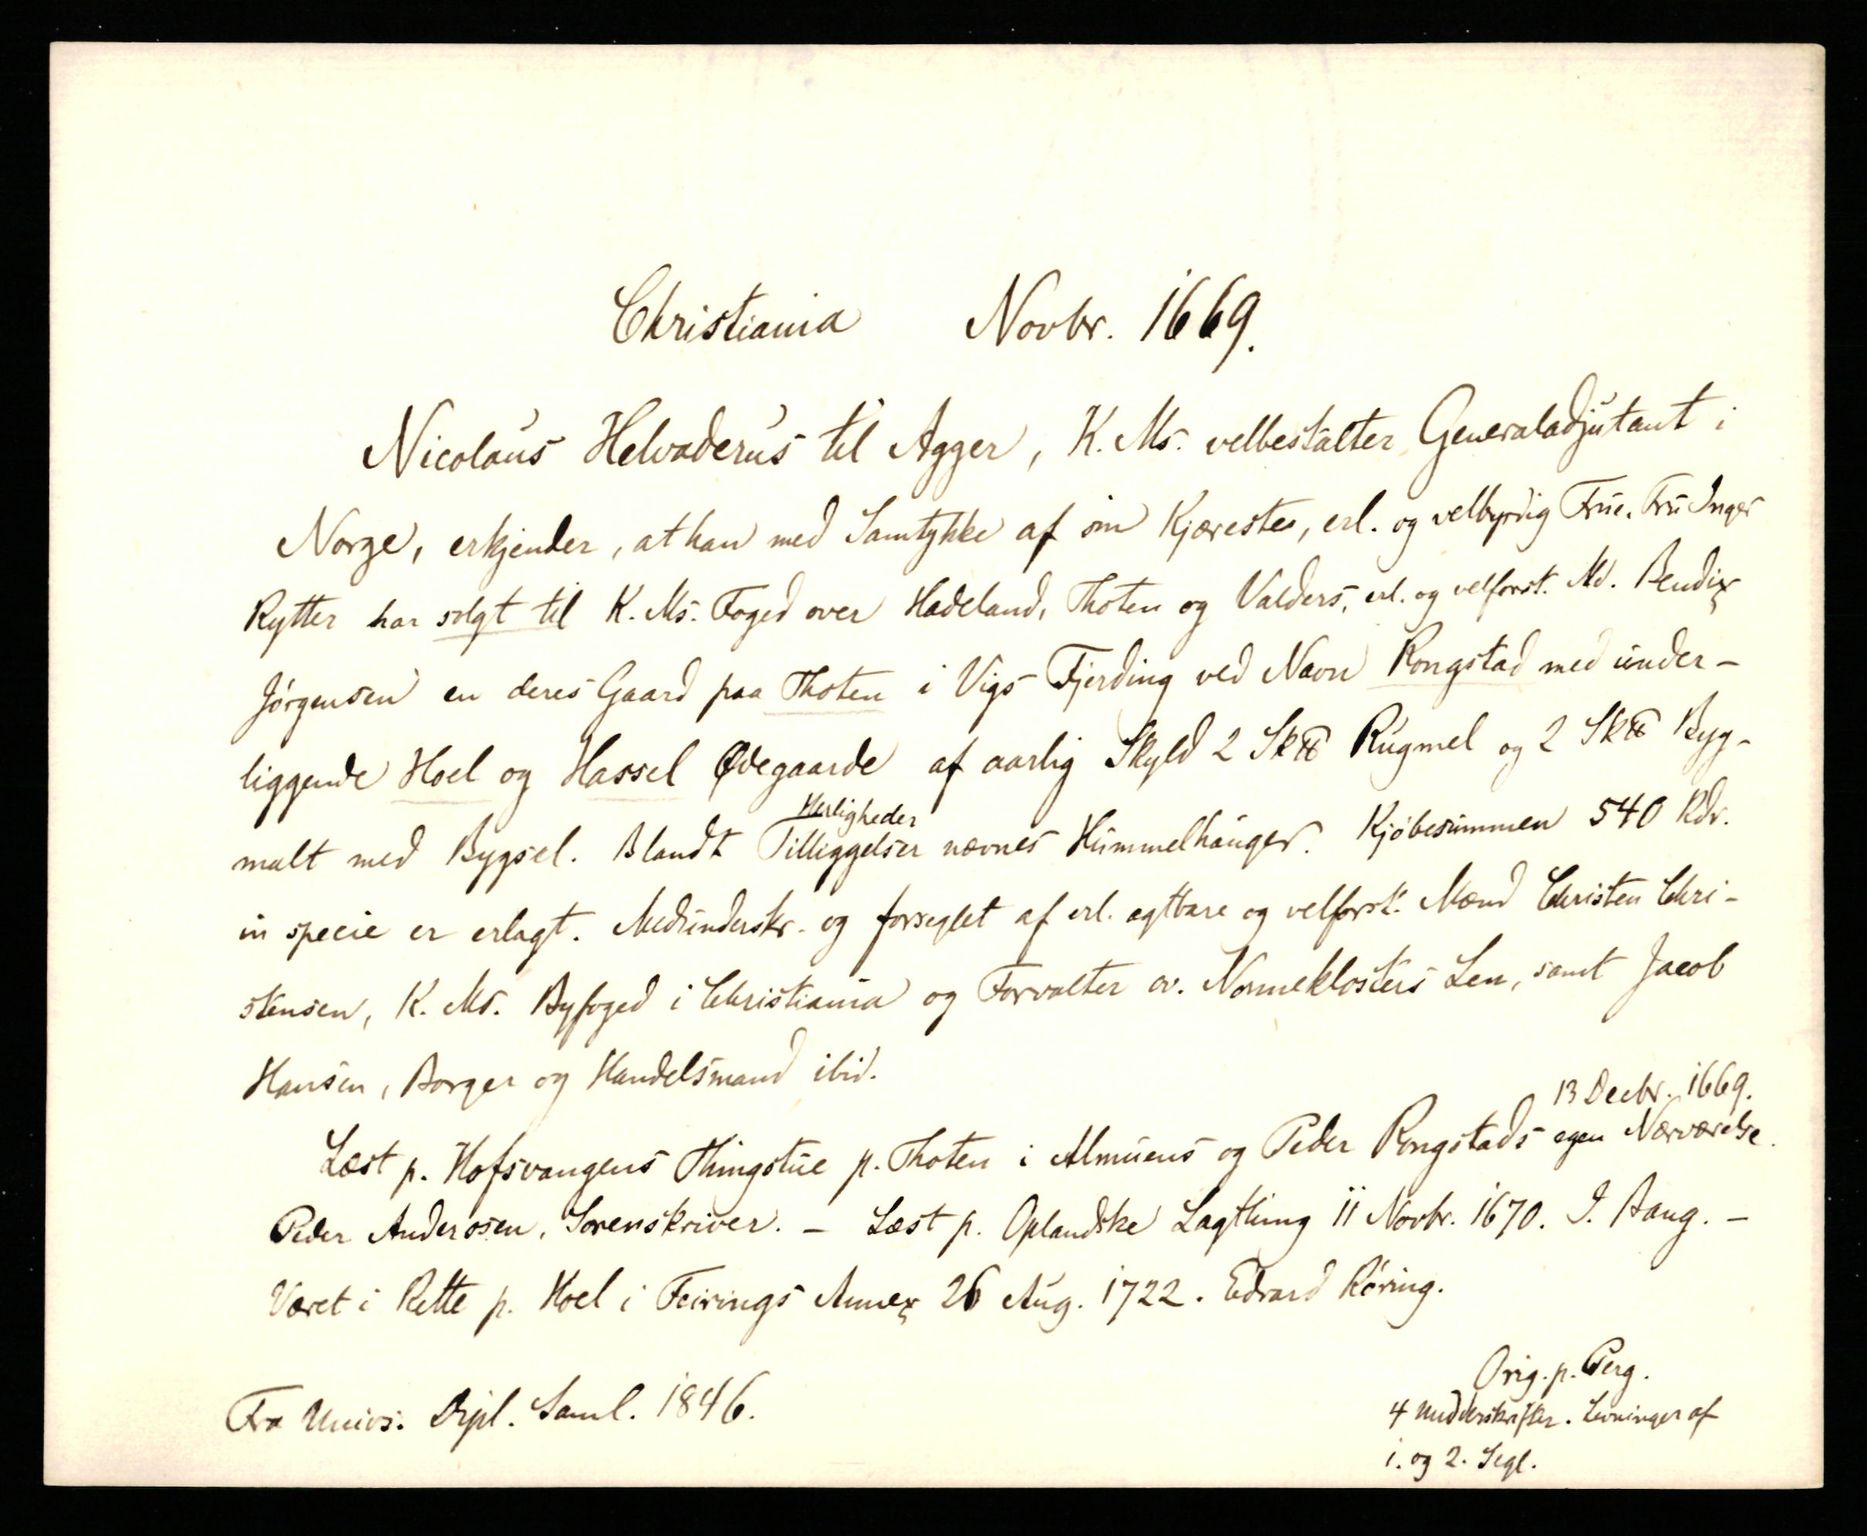 Christiania Novbr. 1669.
Nicolaus Helvaderus til Agger, K. Ms. velbestalter Generaladjutant i
Norge, erkjender, at han med Samtykke af sin Kjæreste, erl. og velbyrdig Frue, Fru Inger
Rytter har solgt til K. Ms. Foged over Hadeland, Thoten og Valders, erl. og velforst. Md. Bendix
Jørgensen en deres Gaard paa Thoten i Vigs Fjerding ved Navn Rongstad med under-
liggende Hoel og Hassel Ødegaarde af aarlig Skyld 2 Sk℔ Rugmel og 2 Sk℔ Byg-
malt med Bygsel. Blandt Tilliggelser nævnes Hummelhauger. Kjøbesummen 540 Rdr.
Herligheder
in specie er erlagt. Medunderskr. og forseglet af erl. agtbare og velforst. Mænd Christen Chri-
stensen, K. Ms. Byfoged i Christiania og Forvalter ov. Nonneklosters Len, samt Jacob
Hansen, Borger og Handelsmand ibid.
13 Decbr. 1669.
Læst p. Hofsvangens Thingstue p. Thoten i Almuens og Peder Rongstads egen Nærværelse.
Peder Andersen, Sorenskriver. – Læst p. Oplandske Lagthing 11 Novbr. 1670. I. Aaug. –
Været i Rette p. Hoel i Feirings Annex 26 Aug. 1722. Edvard Röring.
Orig. p. Perg.
4 Underskrifter. Levninger af
1. og 2. Segl.
Fra Univs. Dipl. Saml. 1846.